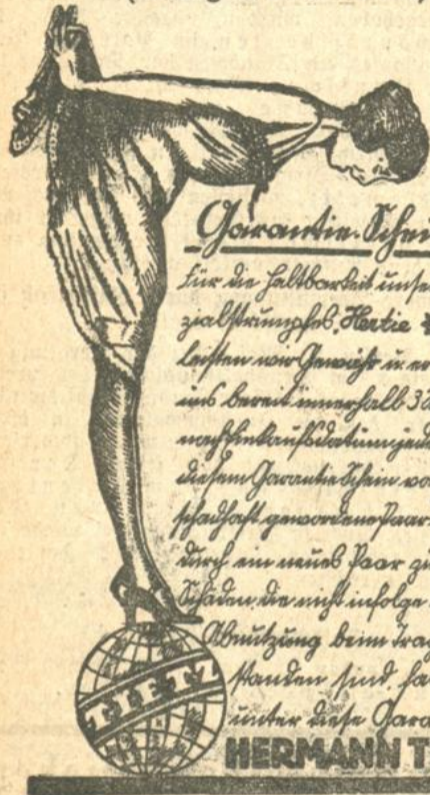 Garantie-Schei
Für die Haltbarkeit unse
zialstrumpfes Hertie
leisten wir Gewähr u er
uns bereit innerhalb
nach Einkaufsdatum jede
diesem Garantie Schein vo
schadhaft gewordene Paar
durch ein neues Paar zu
Schäden, die nicht infolge
Abnutzung beim Trag
standen sind, fa
unter diese Gara
HERMANN T
TIETZ